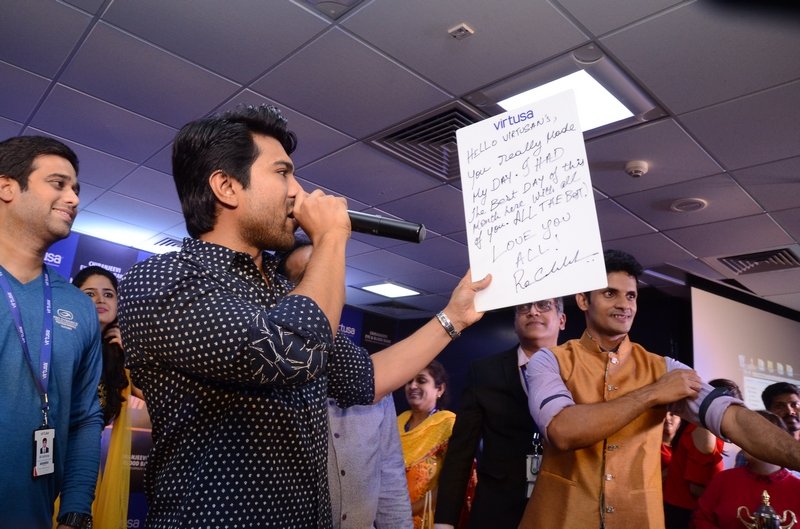 virtusa
HELLO VIRTUSAN'S,
You really Made
My DAY. I HAD
The BEST DAY of this
Month here with all
of you. ALL THE BEST.
LOVE YOU
ALL!
virtusa
virtusa
CHIRANJEEVI
virtusa